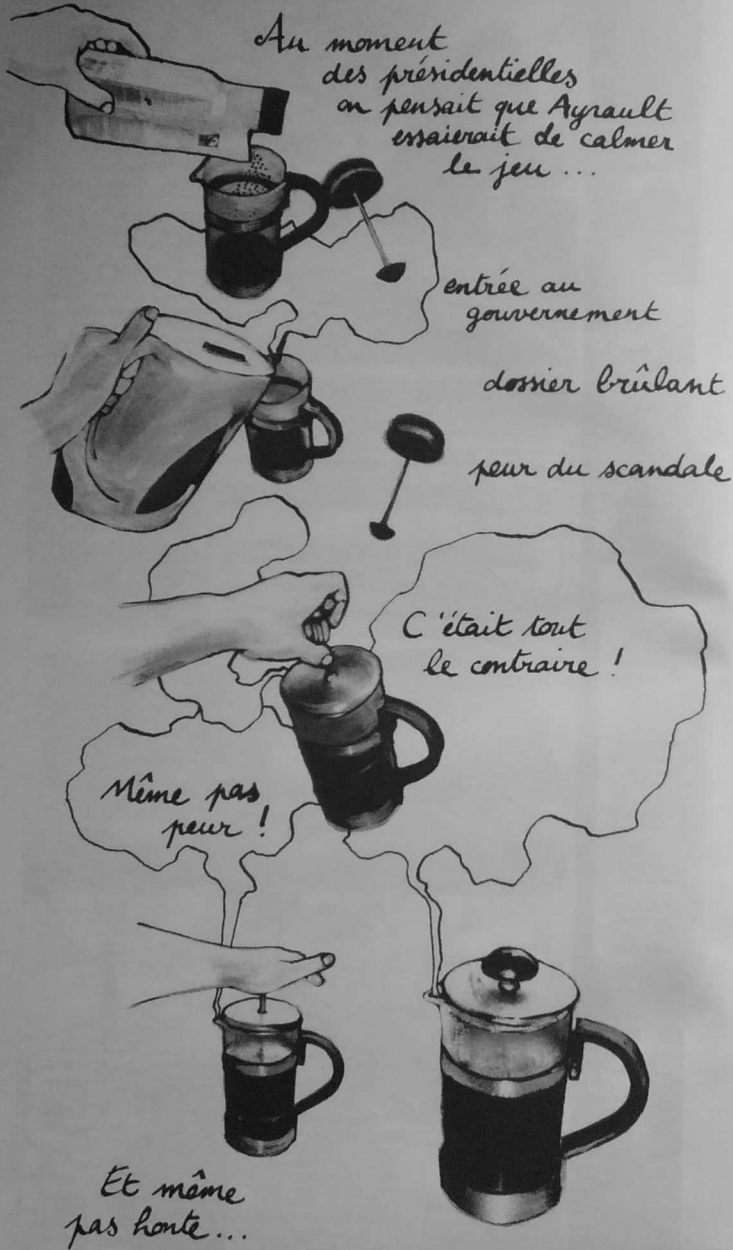 Au moment
des présidentielles
on pensait que Ayrault
essaierait de calmer
le jeu ...
entrée au
gouvernement
dossier brûlant
peur du scandale
C'était tout
le contraire !
Même pas
peur !
Et même
pas honte...